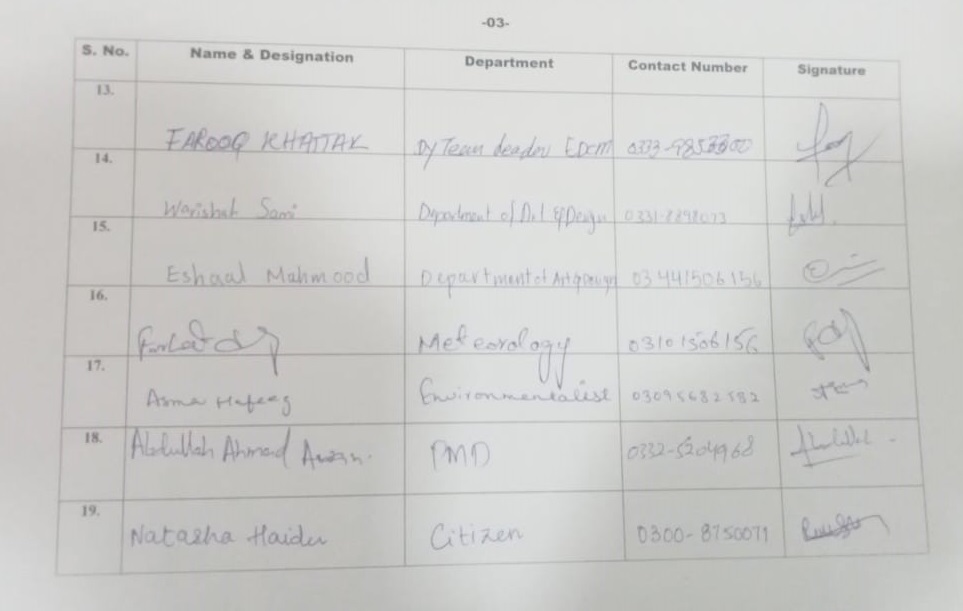 -03-
S. No. Name & Designation Department Contact Number Signature
13. FAROOQ KHATTAK Dy Team Leader EDCM
14. Warishah Sami Department of Art & Design
15. Eshaal Mahmood Department of Art & Design 03441506156
16. Meteorology 03101506156
17. Asma Hafeez Environmentalist 03095682582
18. Abdullah Ahmad Awan. PMD 0332-5204968
19. Natasha Haider Citizen 0300-8750071